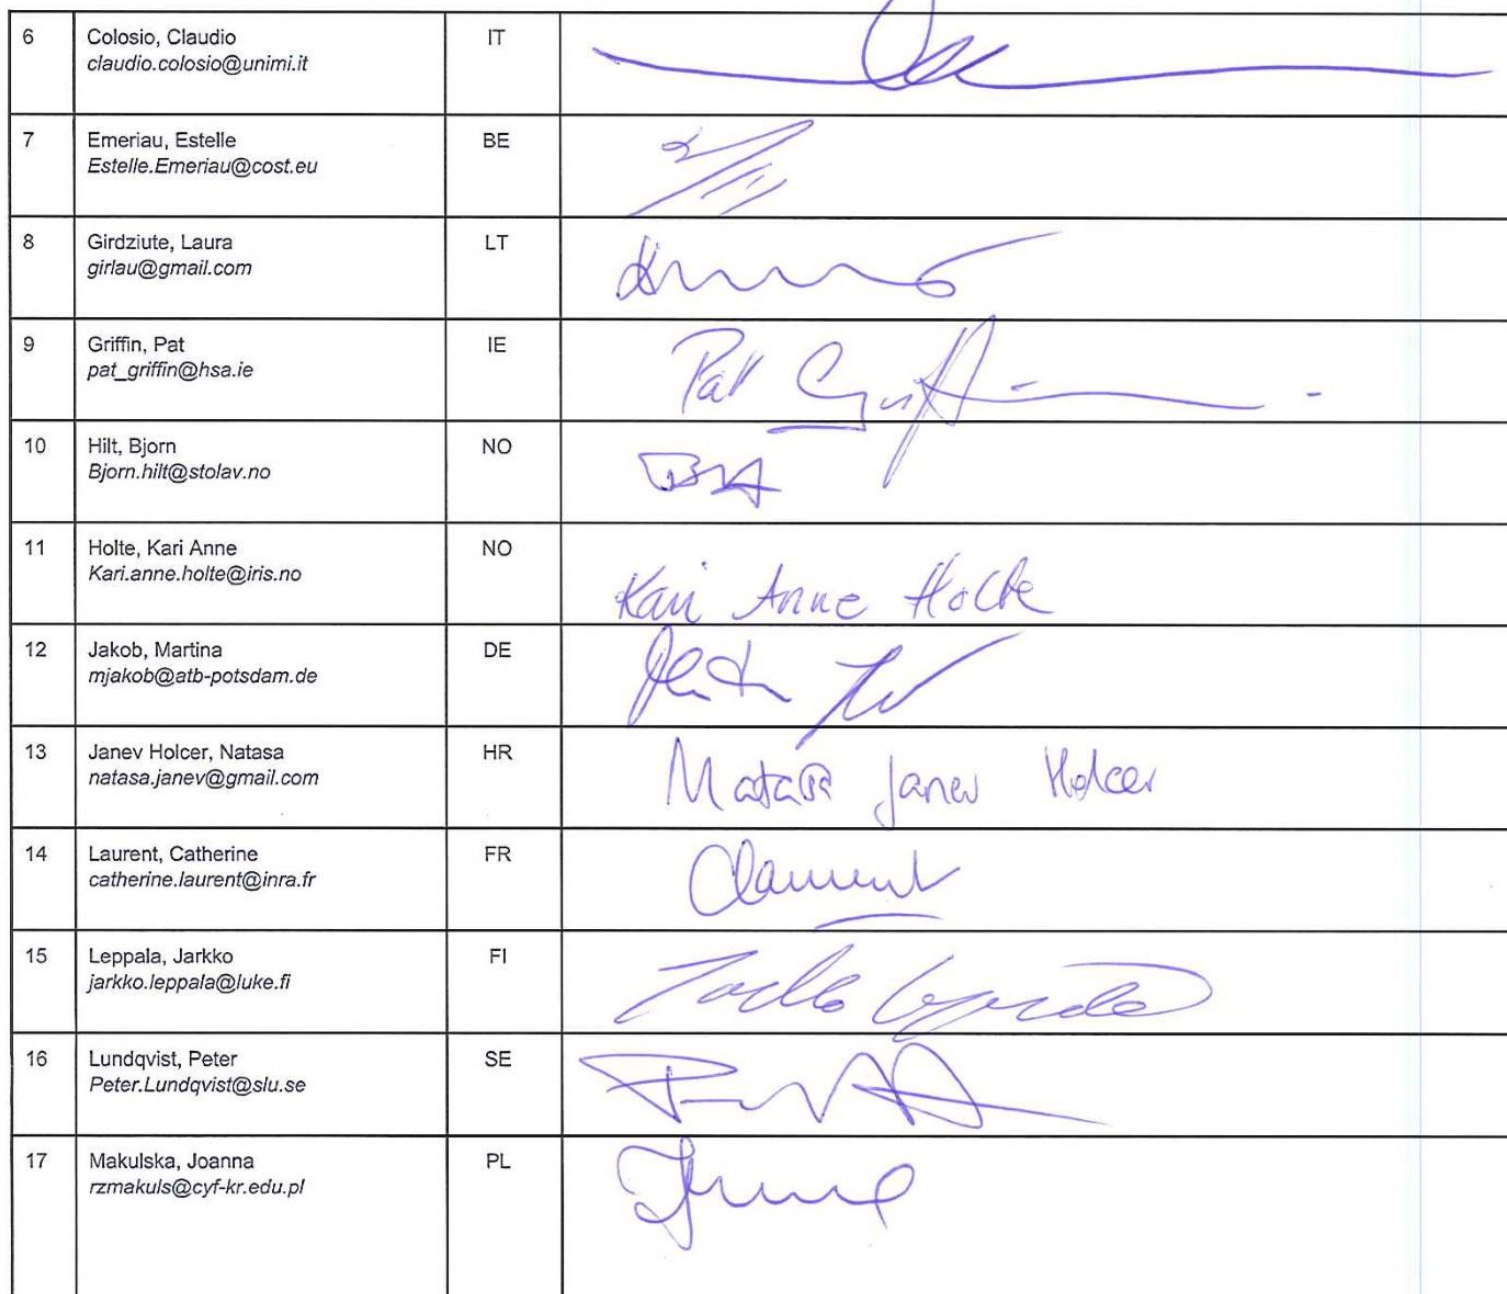 6 Colosio, Claudio IT
claudio.colosio@unimi.it
7 Emeriau, Estelle BE
Estelle.Emeriau@cost.eu
8 Girdziute, Laura LT
girlau@gmail.com
9 Griffin, Pat IE
pat_griffin@hsa.ie
Pat Griffin
10 Hilt, Bjorn NO
Bjorn.hilt@stolav.no
11 Holte, Kari Anne NO
Kari.anne.holte@iris.no
Kari Anne Holte
12 Jakob, Martina DE
mjakob@atb-potsdam.de
13 Janev Holcer, Natasa HR
natasa.janev@gmail.com
Natasa Janev Holcer
14 Laurent, Catherine FR
catherine.laurent@inra.fr
15 Leppala, Jarkko FI
jarkko.leppala@luke.fi
Jarkko Leppala
16 Lundqvist, Peter SE
Peter.Lundqvist@slu.se
17 Makulska, Joanna PL
rzmakuls@cyf-kr.edu.pl